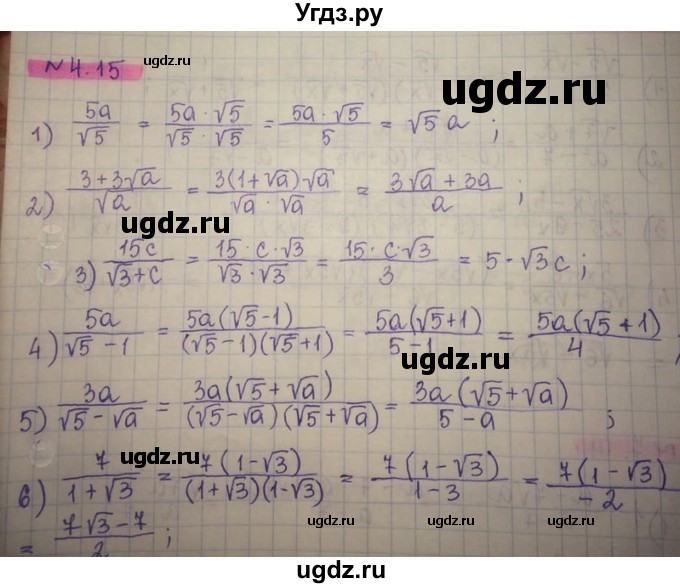 Угдз.ру
ugdz.ru
ugdz.ru
№ 4.15
1) 5a/√5 = 5a·√5/√5·√5 = 5a·√5/5 = √5 a ;
2) 3+3√a/√a = 3(1+√a)√a/√a·√a = 3√a+3a/a ;
ugdz.ru
ugdz.ru
3) 15c/√3+c = 15·c·√3/√3·√3 = 15·c·√3/3 = 5·√3c ;
ugdz.ru
4) 5a/√5-1 = 5a(√5-1)/(√5-1)(√5+1) = 5a(√5+1)/5-1 = 5a(√5+1)/4 ;
ugdz.ru
5) 3a/√5-√a = 3a(√5+√a)/(√5-√a)(√5+√a) = 3a(√5+√a)/5-a ;
ugdz.ru
ugdz.ru
6) 7/1+√3 = 7(1-√3)/(1+√3)(1-√3) = 7(1-√3)/1-3 = 7(1-√3)/-2
= 7√3-7/2 ;
ugdz.ru
ugdz.ru
ugdz.ru
ugdz.ru